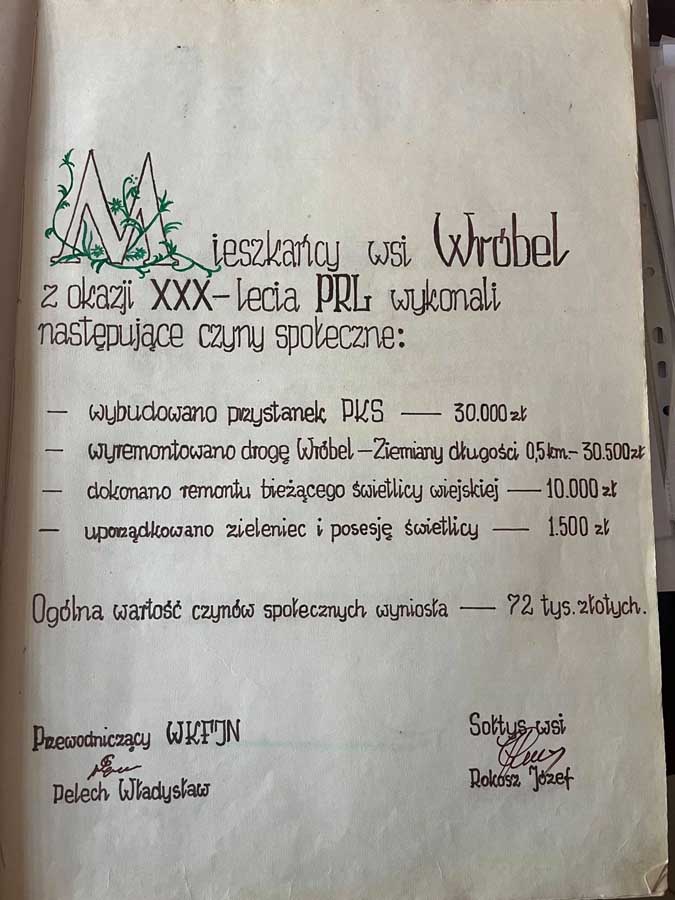 Mieszkańcy wsi Wróbel
z okazji XXX-lecia PRL wykonali
następujące czyny społeczne:
— wybudowano przystanek PKS — 30.000 zł
— wyremontowano drogę Wróbel – Ziemiany długości 0,5 km. – 30.500 zł
— dokonano remontu bieżącego świetlicy wiejskiej — 10.000 zł
— uporządkowano zieleniec i posesję świetlicy — 1.500 zł
Ogólna wartość czynów społecznych wyniosła — 72 tys. złotych.
Przewodniczący WKFJN
Pelech Władysław
Sołtys wsi
Rokosz Józef